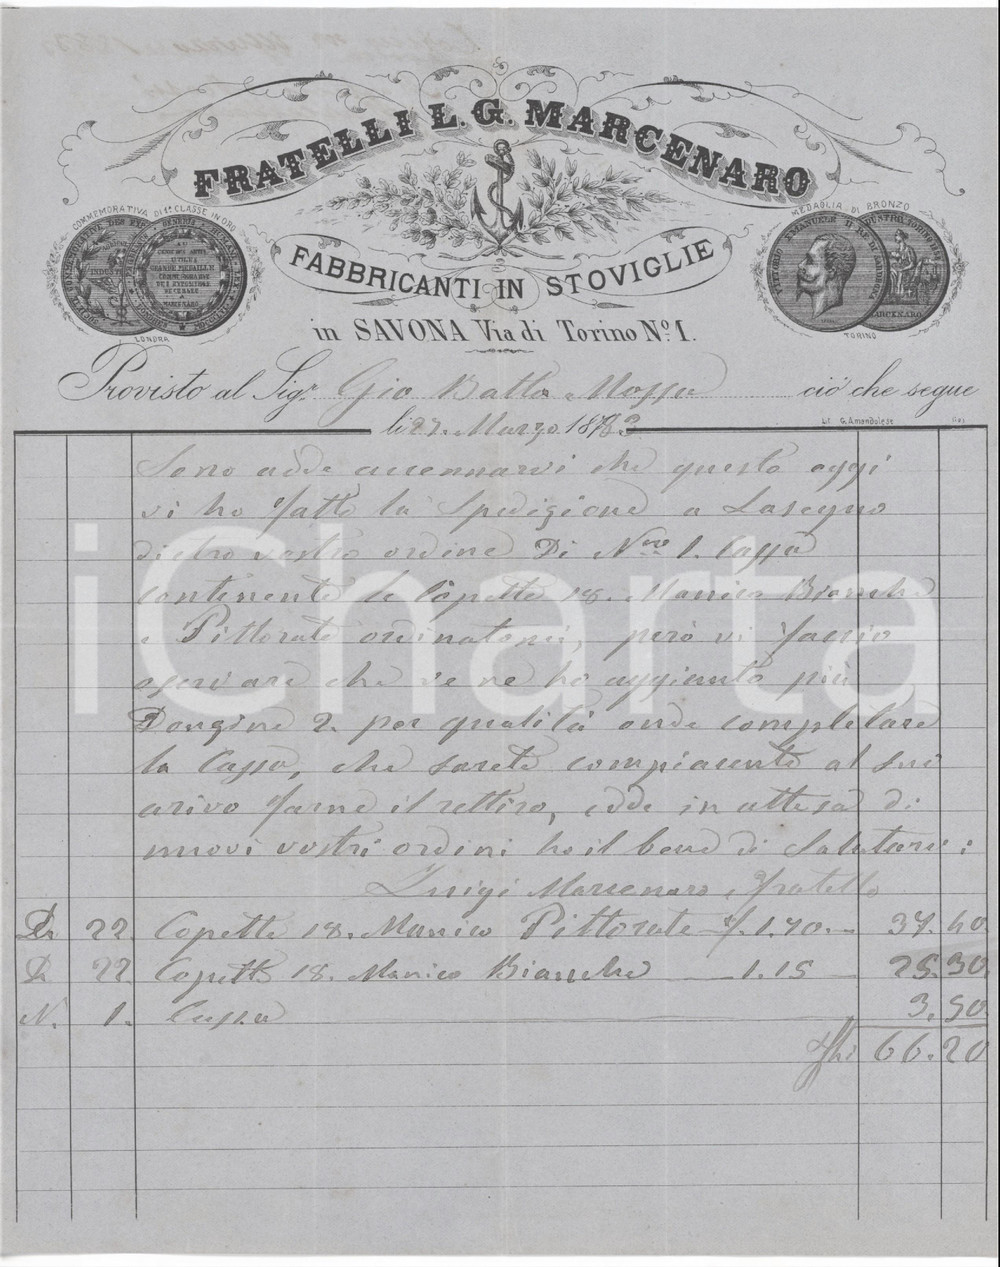 FRATELLI L. G. MARCENARO
COMMEMORATIVA DI 1ª CLASSE IN ORO
LONDRA
MEDAGLIA DI BRONZO
VITTORIO EMANUELE II RE DI SARDEGNA
MARCENARO
TORINO
FABBRICANTI IN STOVIGLIE
in SAVONA Via di Torino Nº 1.
Provisto al Sigr. Gio Batta Mossa ciò che segue
li 27. Marzo 1873
Lit. G. Amandolese
Sono adde accennarvi che questo oggi
vi ho fatto la Spedizione a Lasegno
dietro vostro ordine Di Nro 1. Cassa
contenente le Copette 18. Manico Bianche
e Pittorate ordinatomi, però vi faccio
oservare che ve ne ho aggiunto più
Dongine 2. per qualità onde completare
la Cassa, che sarete compiacente al suo
arivo farne il rettiro, edde in attesa di
nuovi vostri ordini ho il bene di Salutarvi
Luigi Marcenaro e fratello
Dz 22. Copette 18. Manico Pittorate f. 1.70. 37.40
Dz 22. Copette 18. Manico Bianche 1.15 25.30
N. 1. Cassa 3.50
66.20
iCharta